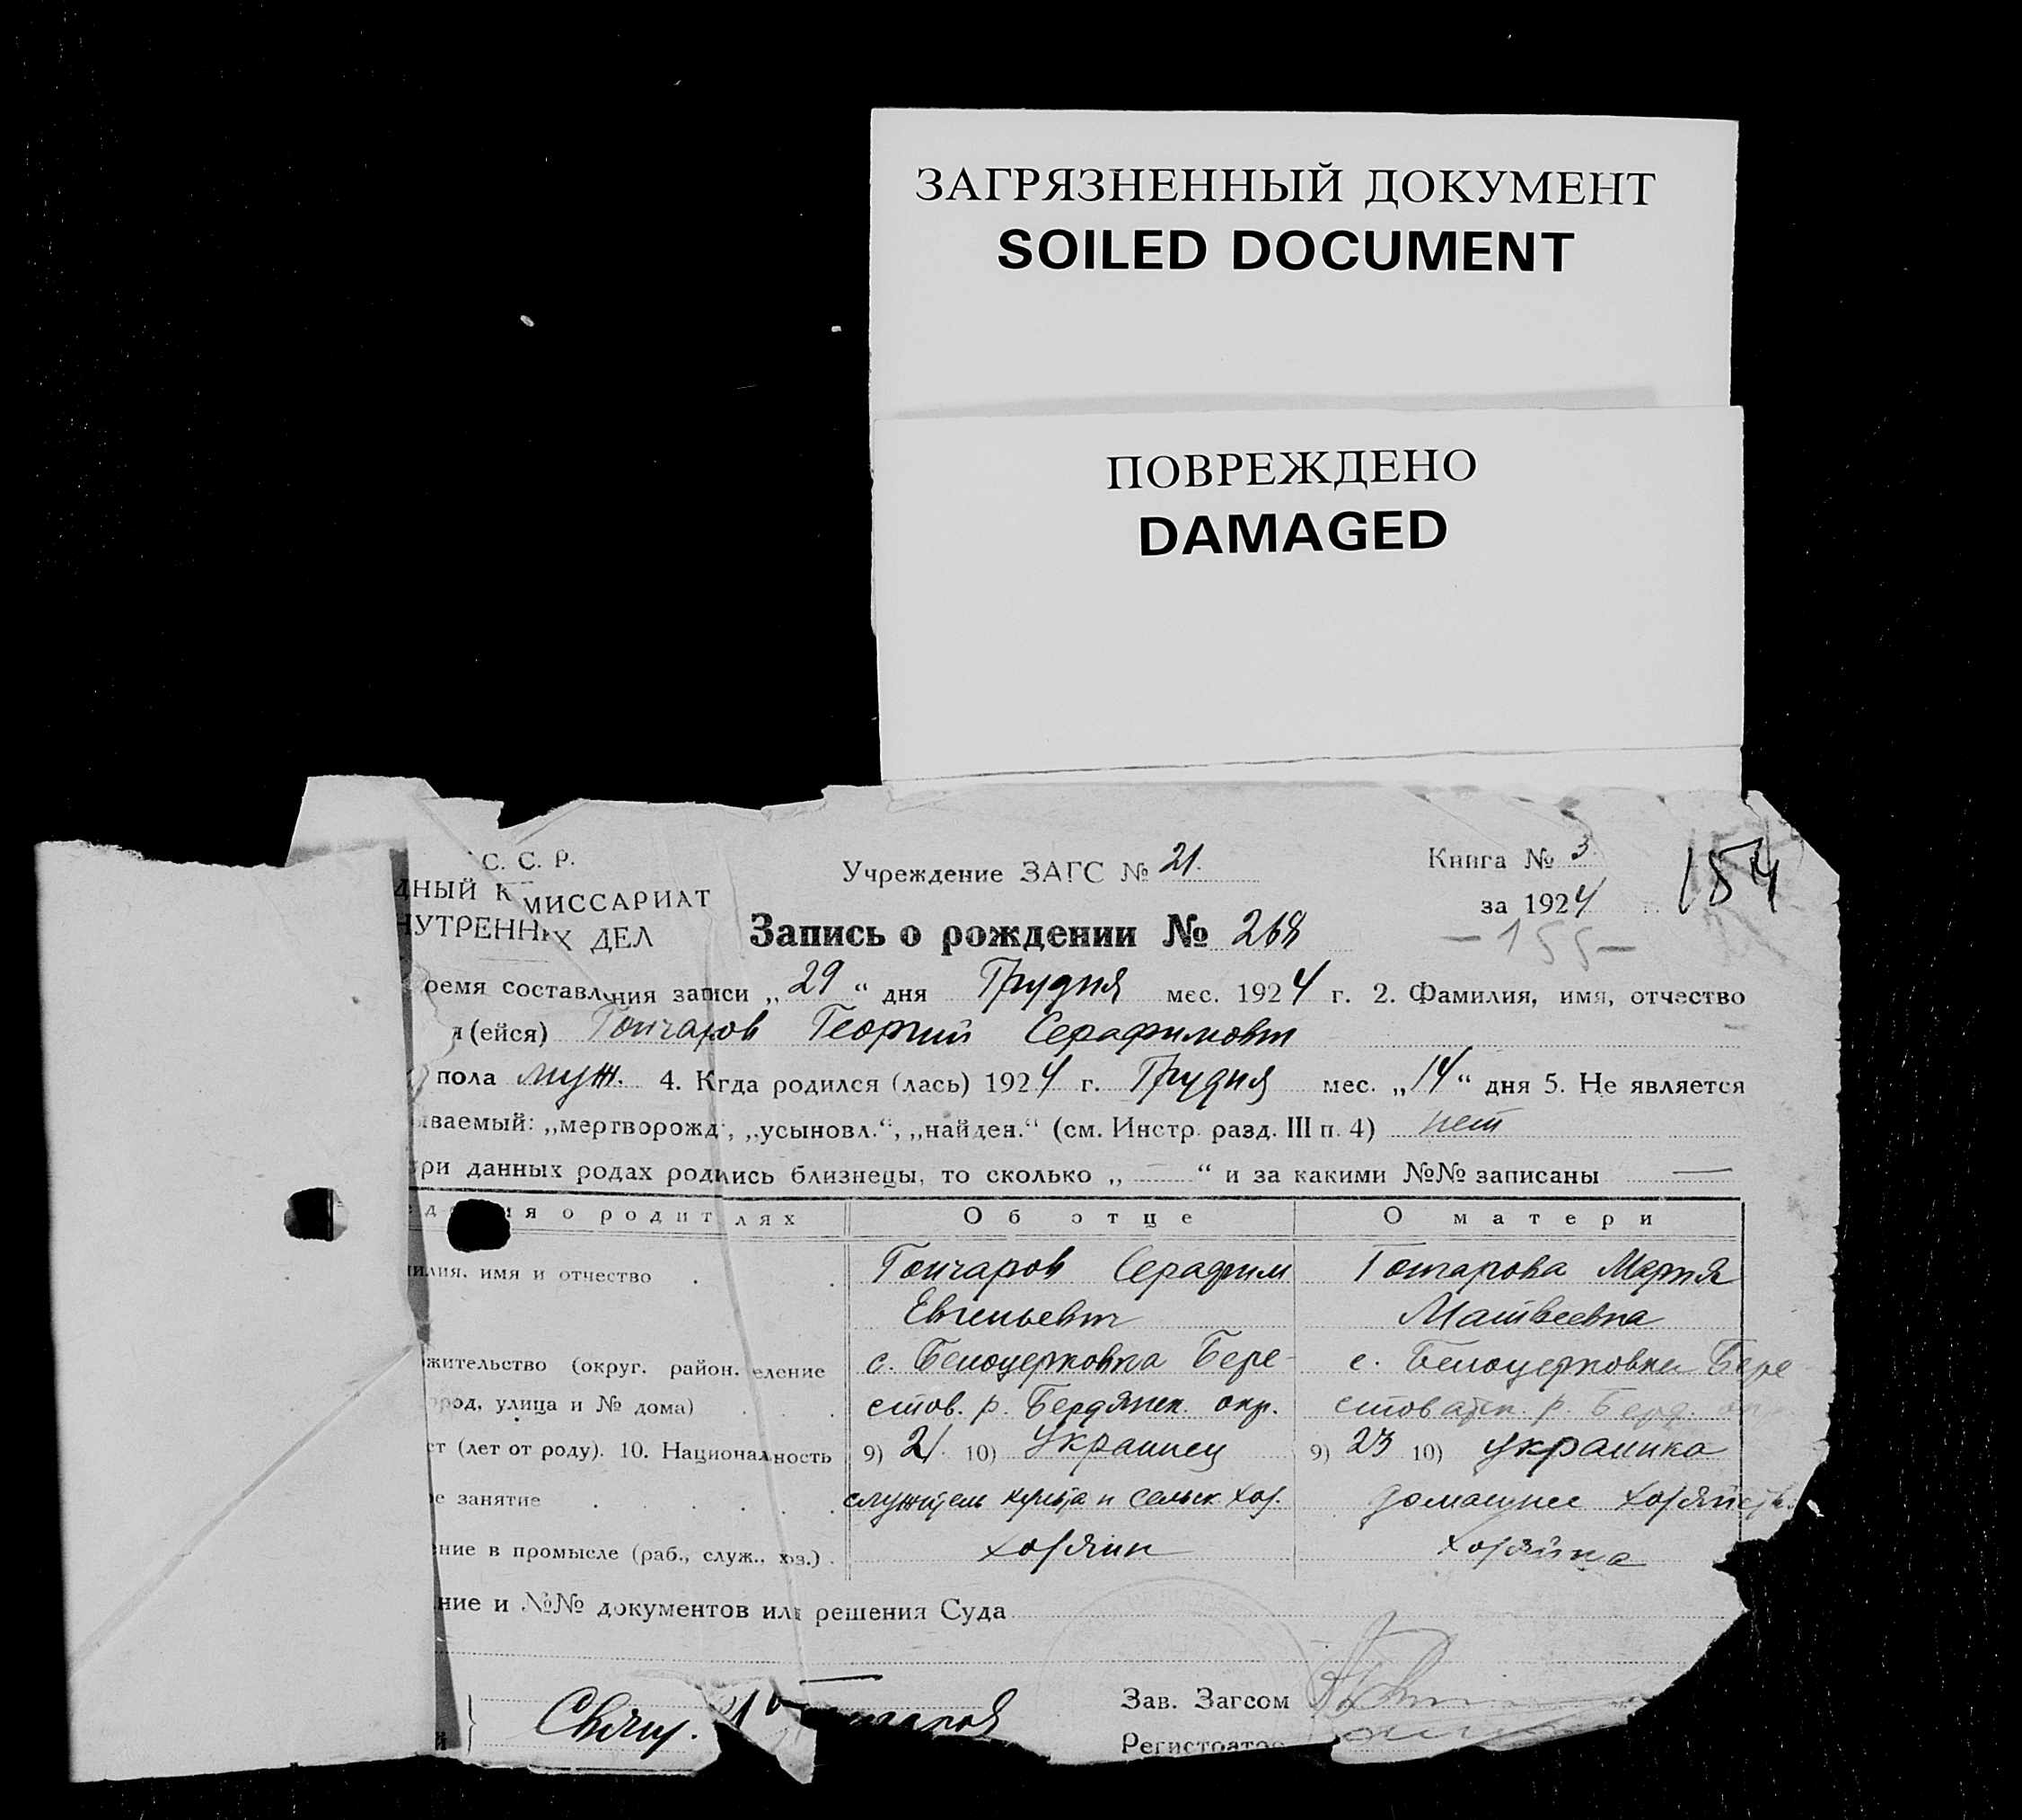 ЗАГРЯЗНЕННЫЙ ДОКУМЕНТ
SOILED DOCUMENT
ПОВРЕЖДЕНО
DAMAGED
С. С. Р.
ДНЫЙ К МИССАРИАТ
НУТРЕННИХ ДЕЛ
Учреждение ЗАГС № 21.
Книга № 3
за 1924 г.
154
-155-
Запись о рождении № 268
ремя составления записи „29“ дня Грудня мес. 1924 г. 2. Фамилия, имя, отчество
я (ейся) Гончаров Георгий Серафимович
пола муж. 4. Кгда родился (лась) 1924 г. Грудня мес. „14“ дня 5. Не является
ываемый: „мертворожд“, „усыновл.“, „найден.“ (см. Инстр. разд. III п. 4) нет
ри данных родах родились близнецы, то сколько „ — “ и за какими №№ записаны —
ед ния о родителях Об отце О матери
илия, имя и отчество . . Гончаров Серафим Гончарова Мария
Евгеньевич Матвеевна
жительство (округ. район. еление с. Белоцерковка Бере- с. Белоцерковка Бере-
ород, улица и № дома) . . стов. р. Бердянск. окр. стоватск. р. Берд. окр.
ст (лет от роду). 10. Национальность 9) 21. 10) Украинец 9) 23 10) Украинка
ое занятие . . . . . служитель культа и сельск. хоз. домашнее хозяйств.
ение в промысле (раб., служ., хоз.) . хозяин хозяйка
ние и №№ документов или решения Суда
Зав. Загсом
Регистратор